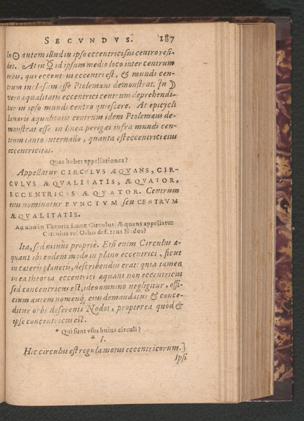 SECVNDVS. 187
autem illud in ipso eccentrici sui centro resi-
det. At in ipsum medio loco inter centrum
sui, qui eccentrici eccentri est, & mundi cen-
trum inclusum esse Ptolemæus demonstrat. In
vero æqualitatis eccentrici centrum deprehendi-
tur in ipso mundi centro quiescere. At epicycli
lunaris æquationis centrum idem Ptolemæus de-
monstrat esse in linea perigei infra mundi cen-
trum tanto interuallo, quanta est eccentrici eius
eccentricitas.
Quas habet appellationes?
Appellatur CIRCVLVS ÆQVANS, CIR-
CVLVS ÆQVALITATIS, ÆQVATOR,
ECCENTRICVS ÆQVATOR. Centrum
nominatur PVNCTVM seu CENTRVM
ÆQVALITATIS.
An in Theoria Lunæ Circulus Æquans appellatur
Circulus vel Orbis deferens Nodos?
Ita, sed minus propriè. Etsi enim Circulus æ-
quans ibi eodem modo in plano eccentrici, sicut
in cæteris planetis, describendus erat: quia tamen
in ea theoria eccentrici æquans non eccentricus
sed concentricus est, ideo nomen negligitur, offi-
cium autem nomenq. eius demandatur & conce-
ditur orbi deferenti Nodos, propterea quod &
ipse concentricus est.
* Qui sunt vsus huius circuli?
* I.
Hic circulus est regula motus eccentricorum.]
Ipsi